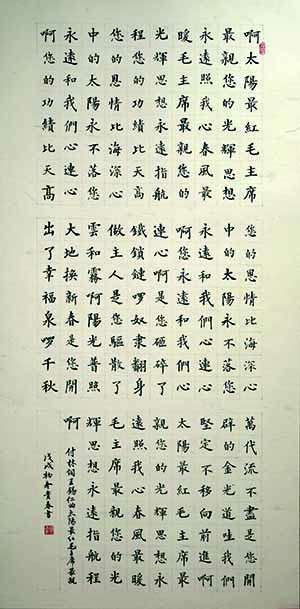 啊太陽最紅毛主席
最親您的光輝思想
永遠照我心春風最
暖毛主席最親您的
光輝思想永遠指航
程您的功績比天高
您的恩情比海深心
中的太陽永不落您
永遠和我們心連心
啊您的功績比天高
您的恩情比海深心
中的太陽永不落您
永遠和我們心連心
啊您永遠和我們心
連心啊是您砸碎了
鐵鎖鏈啰奴隸翻身
做主人是您驅散了
雲和霧啊陽光普照
大地換新春是您開
出了幸福泉啰千秋
萬代流不盡是您開
辟的金光道哇我們
堅定不移向前進啊
太陽最紅毛主席最
親您的光輝思想永
遠照我心春風最暖
毛主席最親您的光
輝思想永遠指航程
啊
付林詞王錫仁曲太陽最紅毛主席最親
戊戌初春書